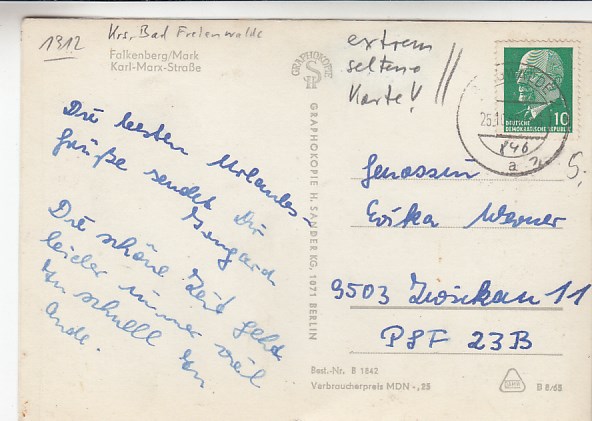 1912 Krs. Bad Freienwalde
Falkenberg/Mark
Karl-Marx-Straße
extrem
seltene
Karte!
GRAPHOKOPIE
GRAPHOKOPIE H. SANDER KG, 1071 BERLIN
DEUTSCHE
DEMOKRATISCHE REPUBLIK
10
846
a
Die besten Urlaubs-
grüße sendet Dir
Irmgard
Die schöne Zeit geht
leider immer viel
zu schnell zu
Ende.
Genossin
Erika Werner
9503 Zwickau 11
PSF 23B
Best.-Nr. B 1842
Verbraucherpreis MDN -,25
B 8/65